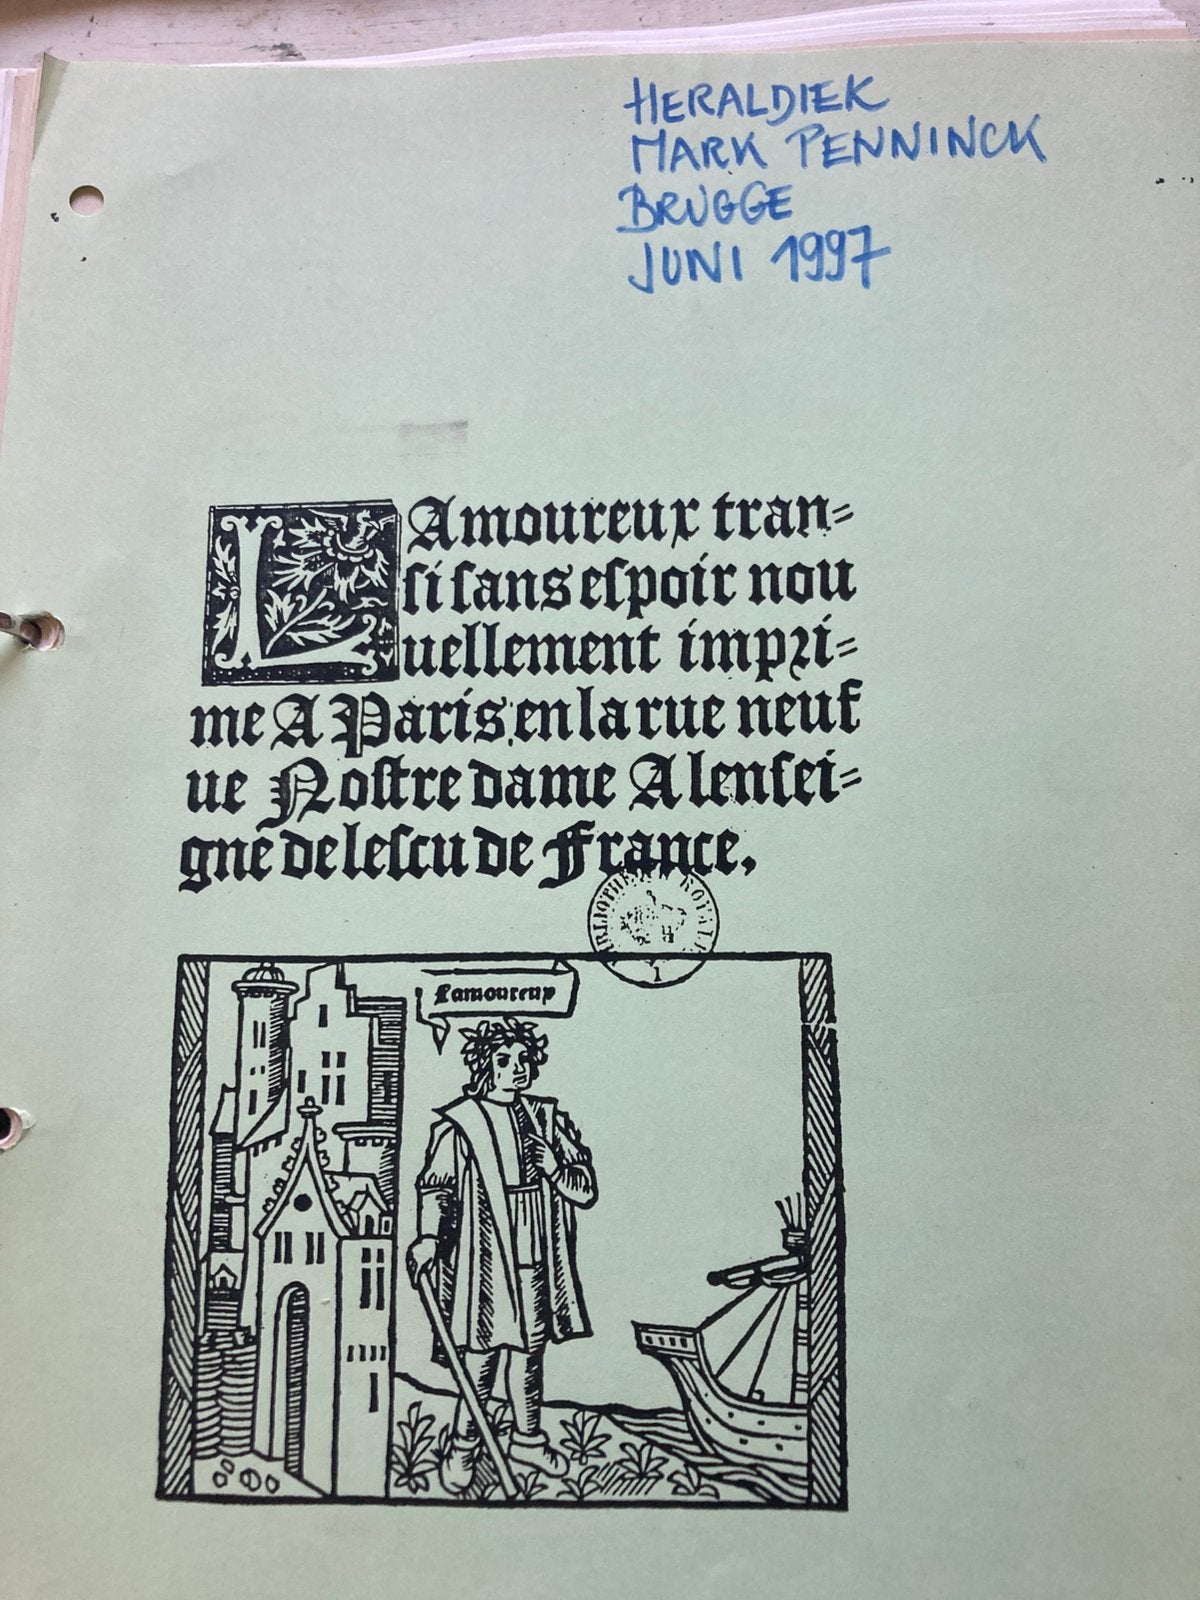 HERALDIEK
MARK PENNINCK
BRUGGE
JUNI 1997
LAmoureux tran=
ſi ſans eſpoir nou
uellement impri=
me A Paris en la rue neuf
ue Noſtre dame A lenſei=
gne de leſcu de France.
BIBLIOTHE ROYALE
Lamoureux